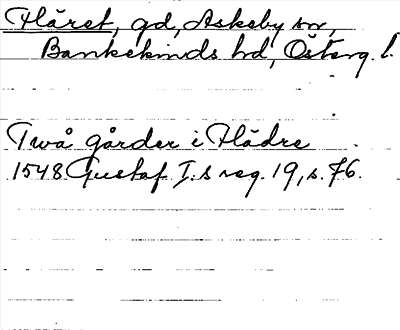 Fläret, gd, Askeby sn,
Bankekinds hd, Österg. l.
Två gårder i Flädre
1548 Gustaf I:s reg. 19, s. 76.